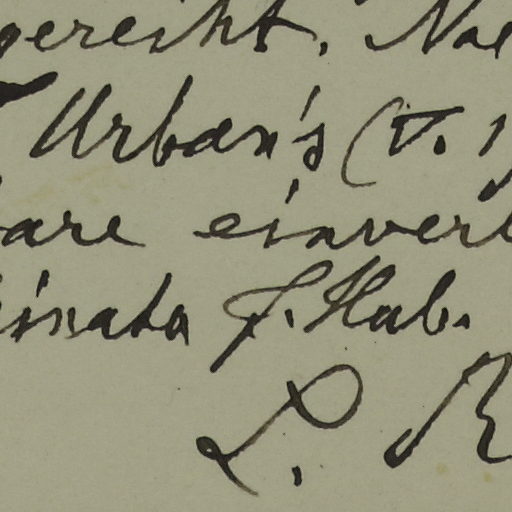 gereiht. Na
Urban's (v.
are einverl
inata f. Hab.
L. R